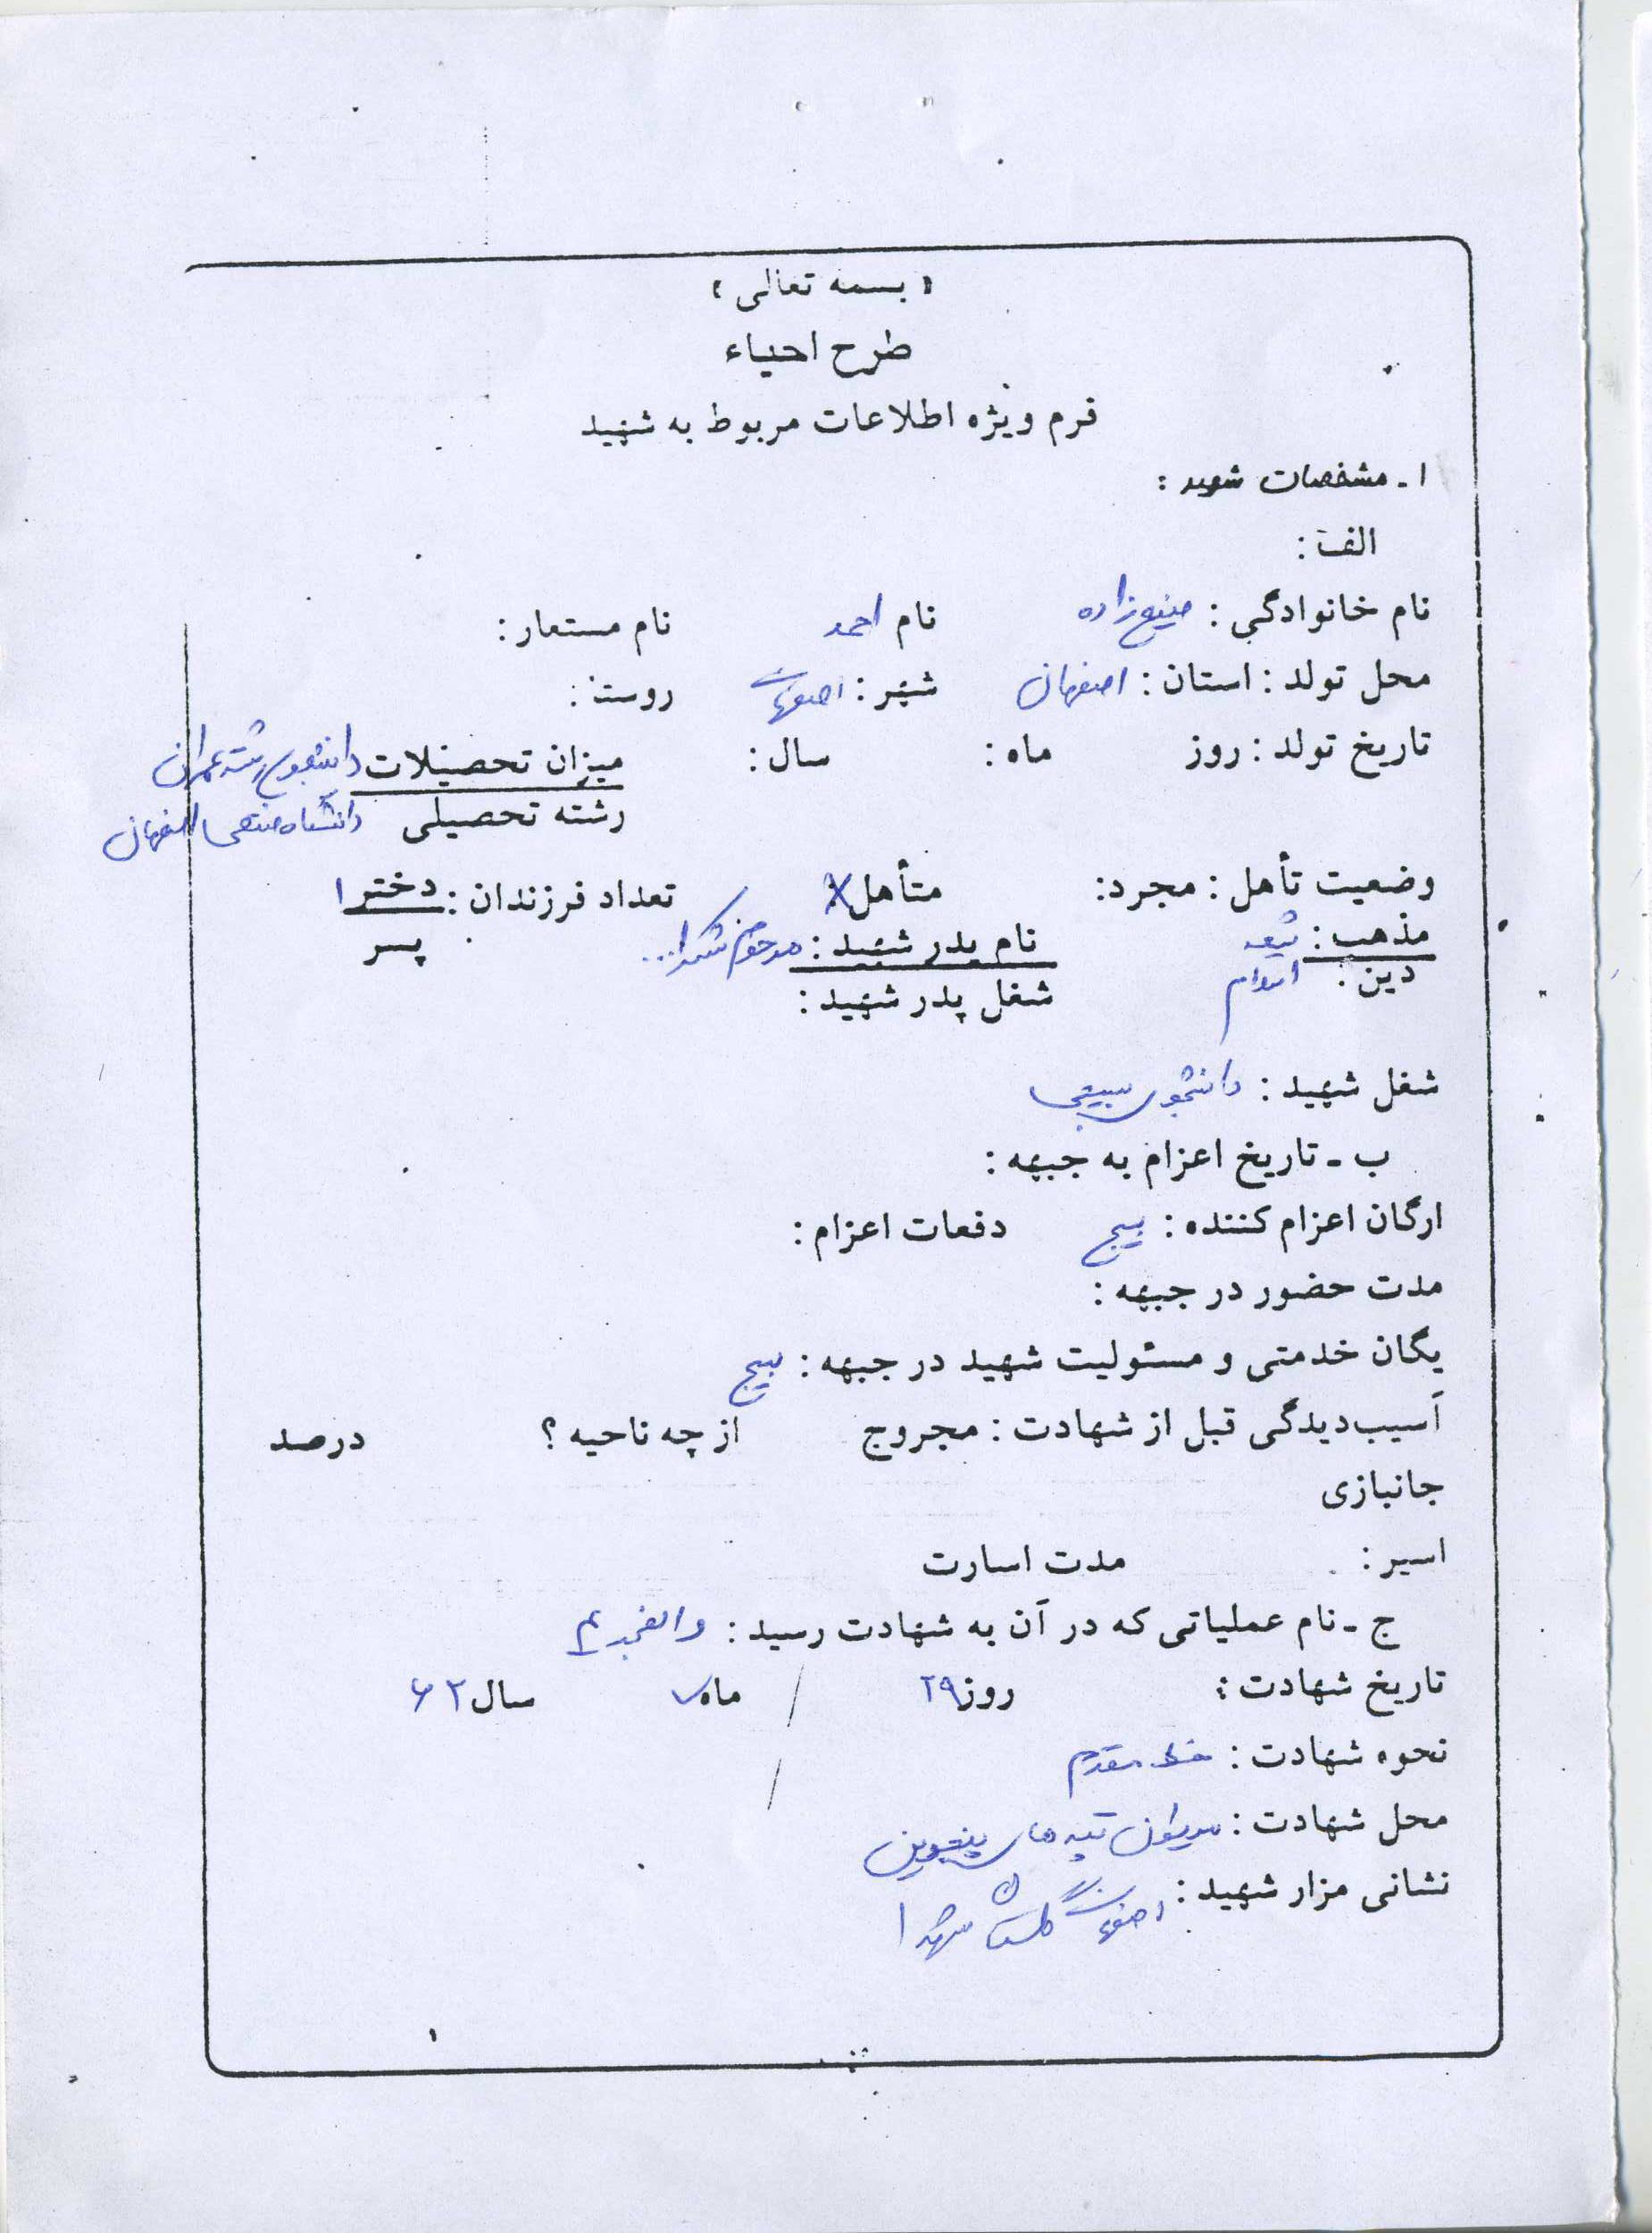 « بسمه تعالی »
طرح احیاء
فرم ویژه اطلاعات مربوط به شهید
۱ ـ مشخصات شهید :
الف :
نام خانوادگی : صنیع‌زاده نام احمد نام مستعار :
محل تولد : استان : اصفهان شهر : اصفهان روستا :
تاریخ تولد : روز ماه : سال : میزان تحصیلات دانشجوی رشته عمران
رشته تحصیلی دانشگاه صنعتی اصفهان
وضعیت تأهل : مجرد: متأهل X تعداد فرزندان : دختر ۱
مذهب : شیعه نام پدر شهید : مرحوم شکرا... پسر
دین : اسلام شغل پدر شهید :
شغل شهید : دانشجوی بسیجی
ب ـ تاریخ اعزام به جبهه :
ارگان اعزام کننده : بسیج دفعات اعزام :
مدت حضور در جبهه :
یگان خدمتی و مسئولیت شهید در جبهه : بسیج
آسیب‌دیدگی قبل از شهادت : مجروح از چه ناحیه ؟ درصد
جانبازی
اسیر : مدت اسارت
ج ـ نام عملیاتی که در آن به شهادت رسید : والفجر ۴
تاریخ شهادت : روز ۲۹ / ماه ۷ سال ۶۲
نحوه شهادت : خط مقدم
محل شهادت : مریوان تپه‌های پنجوین
نشانی مزار شهید : اصفهان گلستان شهدا
۱